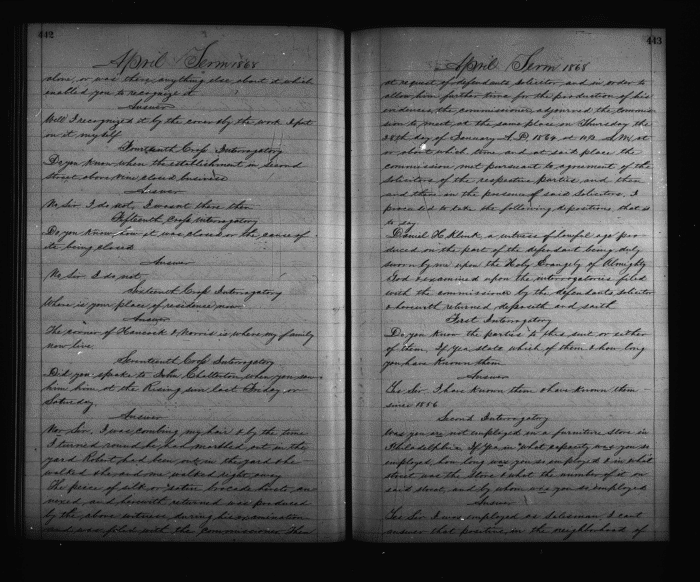 442
April Term 1868
alone, or was there anything else about it which
enabled you to recognize it
Answer
Well I recognized it by the cover & by the work I put
on it myself
Fourteenth Cross Interrogatory
Do you know when the establishment on second
street above Vine closed business
Answer
No Sir I do not, I wasent there then
Fifteenth Cross Interrogatory
Do you know how it was closed or the cause of
its being closed
Answer
No Sir I do not
Sixteenth Cross Interrogatory
Where is your place of residence now
Answer
The corner of Hancock & Norris is where my family
now live
Seventeenth Cross Interrogatory
Did you speake to John Chatterton when you saw
him at the Rising sun last Friday or
Saturday
Answer
No Sir, I was combing my hair & by the time
I turned round he had marched out in the
yard Robert had him out in the yard & he
walked she and me walked right away
The peece of silk or Satin brocade hereto an-
nexed and herewith returned was produced
by the above witness during his examination
and was filed with the commissioner. Then
443
April Term 1868
at request of defendants solicitor and in order to
allow him further time for the production of his
evidence, the commissioner adjourned the commis-
sion to meet at the same place on Thursday the
28th day of January A.D. 1864 at 10 A.M. at
or about which time and at said place the
commission met pursuant to agreement of the
solicitors of the respective parties and then
and there in the presence of said Solicitors, I
proceeded to take the following depositions, that is
to say
Daniel H. Klunk, a witness of lawful age pro
duced on the part of the defendant being duly
sworn by me upon the Holy Evangely of Almighty
God & examined upon the interrogatories filed
with the commissioner by the defendants solicitor
& herewith returned, deposeth and saith
First Interrogatory
Do you know the parties to this suit or either
of them, If Yea state which of them & how long
you have known them
Answer
Yes Sir I have known them & have known them
since 1856
Second Interrogatory
Was you or not employed in a furniture store in
Philadelphia If Yea in what capacity was you so
employed, how long was you so employed & in what
street was the Store & what the number of it on
said street, and by whom was you so employed
Answer
Yes Sir I was employed as salesman, I cant
answer that positive, in the neighborhood of